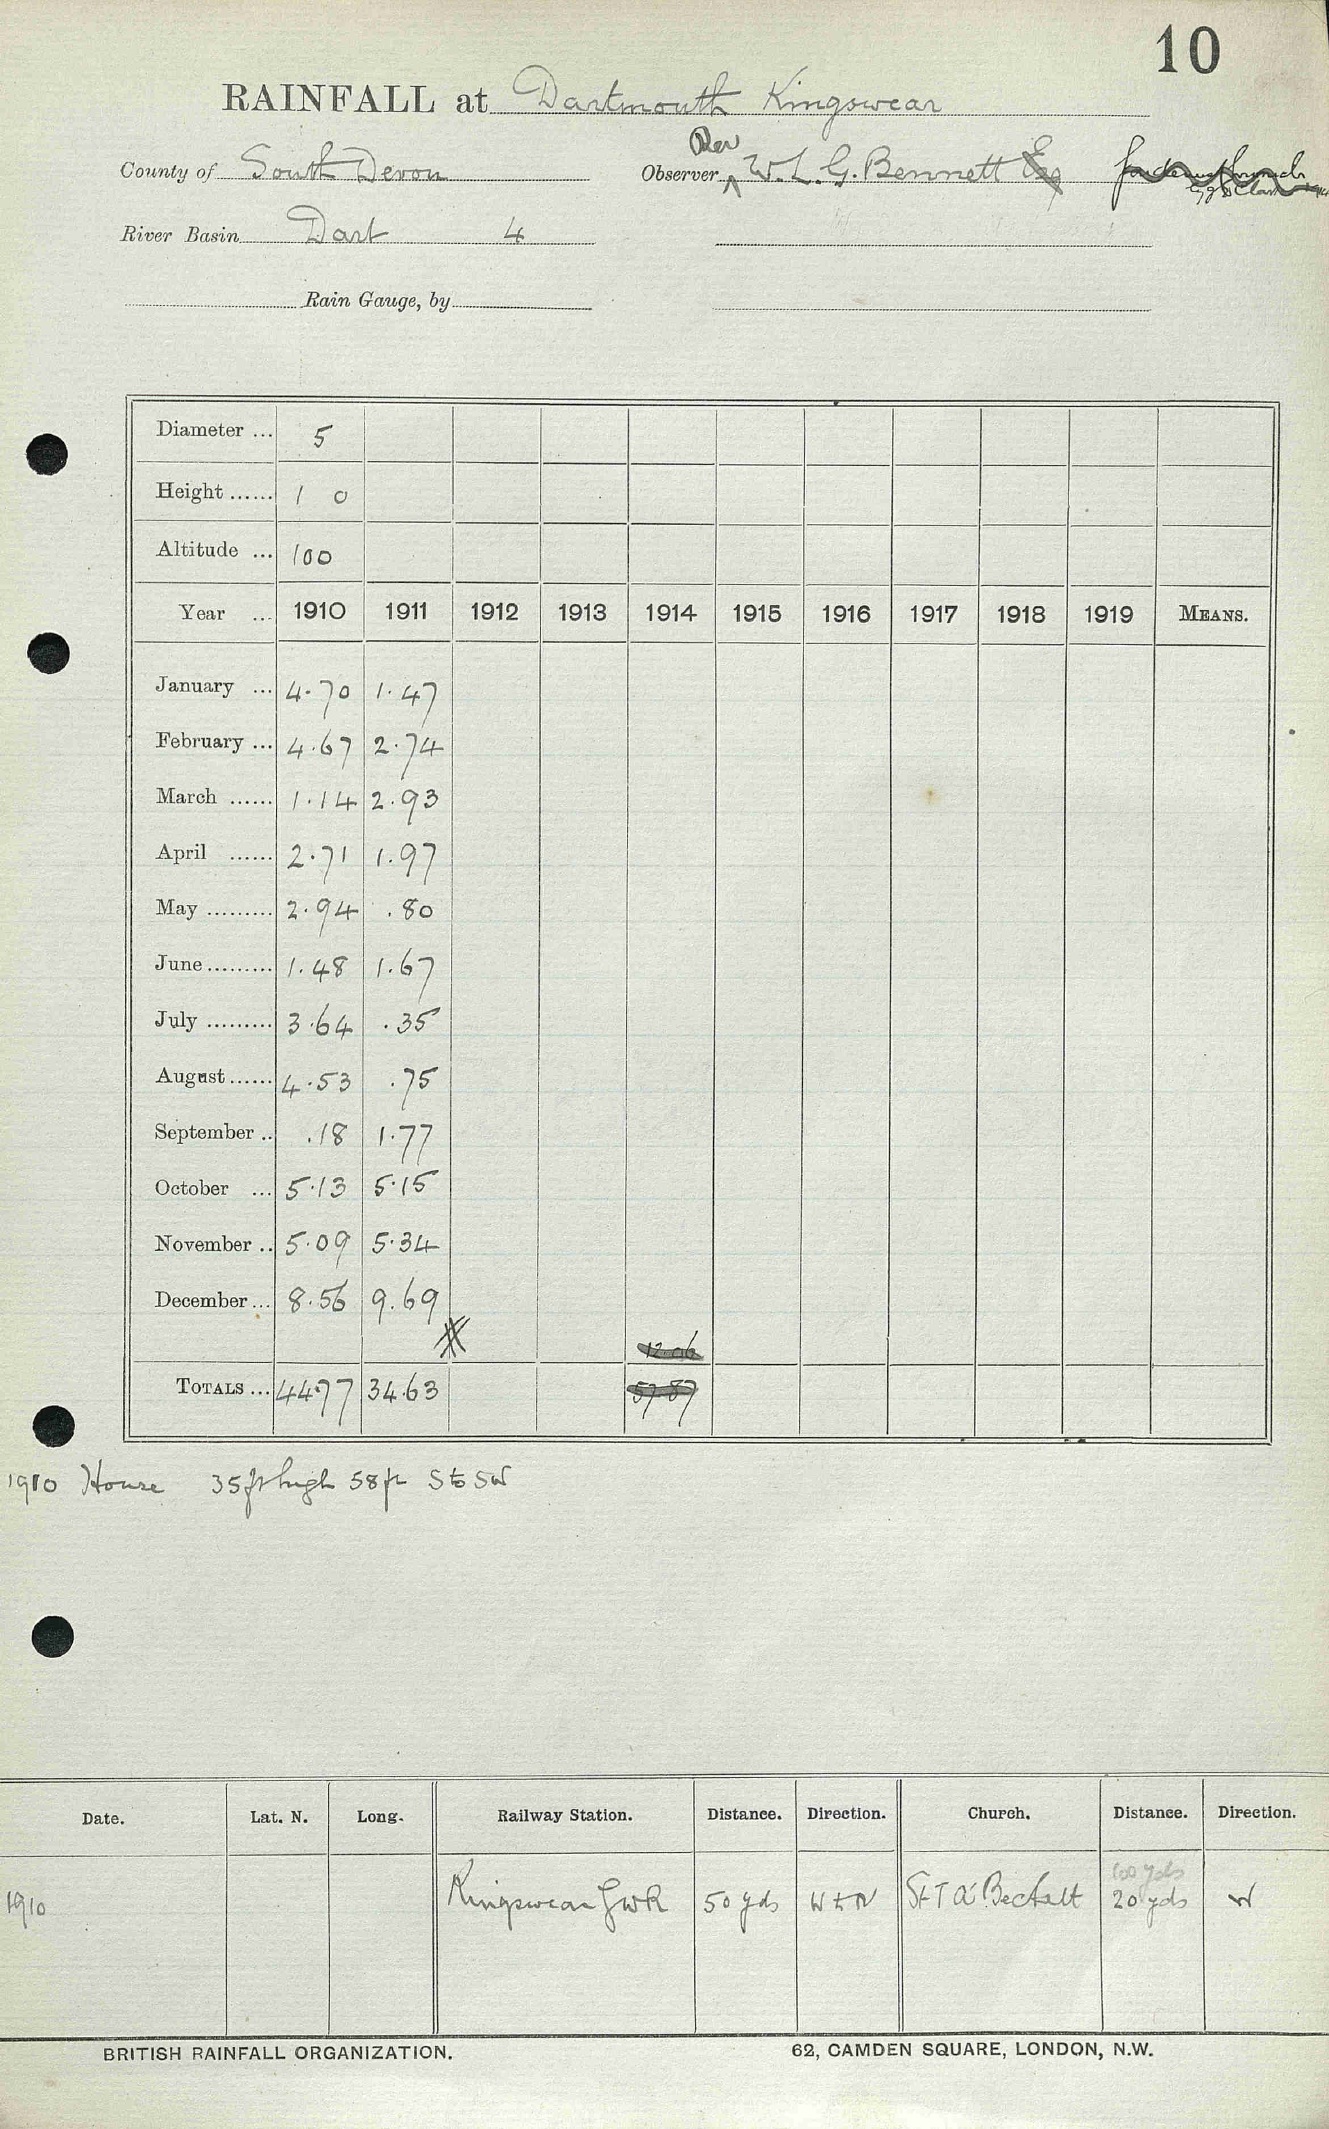 10
RAINFALL at Dartmouth Kingswear
Rev
County of South Devon Observer W. L. G. Bennett Esq
River Basin Dart 4
Rain Gauge, by
Diameter ... 5
Height ...... 1 0
Altitude ... 100
Year ... 1910 1911 1912 1913 1914 1915 1916 1917 1918 1919 MEANS.
January ... 4.70 1.47
February ... 4.67 2.74
March ...... 1.14 2.93
April ...... 2.71 1.97
May ......... 2.94 .80
June ......... 1.48 1.67
July ......... 3.64 .35
August ...... 4.53 .75
September .. .18 1.77
October ... 5.13 5.15
November .. 5.09 5.34
December ... 8.56 9.69
12.06
TOTALS ... 44.77 34.63 57.87
1910 House 35 ft high 58 ft S to SW
Date. Lat. N. Long. Railway Station. Distance. Direction. Church. Distance. Direction.
100 yds
1910 Kingswear GWR 50 yds W t N St T a Beckett 20 yds W
BRITISH RAINFALL ORGANIZATION. 62, CAMDEN SQUARE, LONDON, N.W.